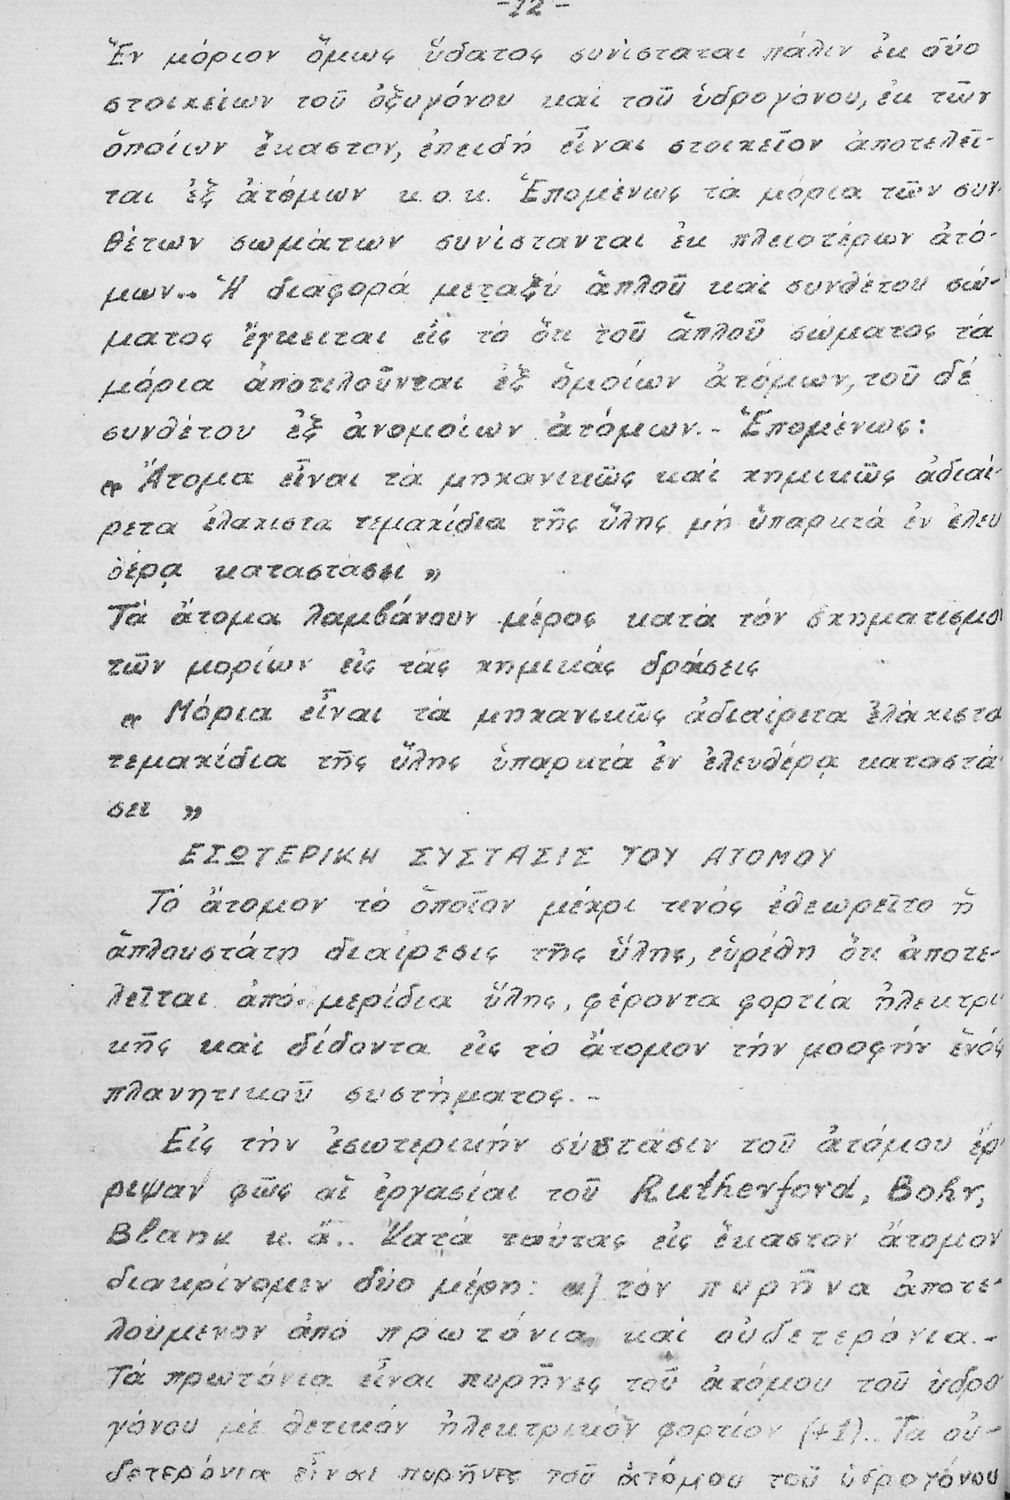 -12-
Ἕν μόριον ὅμως ὕδατος συνίσταται πάλιν ἐκ δύο
στοιχείων τοῦ ὀξυγόνου καί τοῦ ὑδρογόνου, ἐκ τῶν
ὁποίων ἕκαστον, ἐπειδή εἶναι στοιχεῖον ἀποτελεῖ-
ται ἐξ ἀτόμων κ.ο.κ. Ἑπομένως τά μόρια τῶν συν-
θέτων σωμάτων συνίστανται ἐκ πλειοτέρων ἀτό-
μων.. Ἡ διαφορά μεταξύ ἁπλοῦ καί συνθέτου σώ-
ματος ἔγκειται εἰς τό ὅτι τοῦ ἁπλοῦ σώματος τά
μόρια ἀποτελοῦνται ἐξ ὁμοίων ἀτόμων, τοῦ δέ
συνθέτου ἐξ ἀνομοίων ἀτόμων.- Ἑπομένως:
« Ἄτομα εἶναι τά μηχανικῶς καί χημικῶς ἀδιαί-
ρετα ἐλάχιστα τεμαχίδια τῆς ὕλης μή ὑπαρκτά ἐν ἐλευ
θέρᾳ καταστάσει »
Τά ἄτομα λαμβάνουν μέρος κατά τόν σχηματισμό
τῶν μορίων εἰς τάς χημικάς δράσεις
« Μόρια εἶναι τά μηχανικῶς ἀδιαίρετα ἐλάχιστα
τεμαχίδια τῆς ὕλης ὑπαρκτά ἐν ἐλευθέρᾳ καταστά-
σει »
ΕΣΩΤΕΡΙΚΗ ΣΥΣΤΑΣΙΣ ΤΟΥ ΑΤΟΜΟΥ
Τό ἄτομον τό ὁποῖον μέχρι τινός ἐθεωρεῖτο ἡ
ἁπλουστάτη διαίρεσις τῆς ὕλης, εὑρέθη ὅτι ἀποτε-
λεῖται ἀπό μερίδια ὕλης, φέροντα φορτία ἠλεκτρι-
κῆς καί δίδοντα εἰς τό ἄτομον τήν μοσφήν ἑνός
πλανητικοῦ συστήματος.-
Εἰς τήν ἐσωτερικήν σύστασιν τοῦ ἀτόμου ἔρ-
ριψαν φῶς αἱ ἐργασίαι τοῦ Rutherford, Bohr,
Blank κ.ἄ.. Κατά ταύτας εἰς ἕκαστον ἄτομον
διακρίνομεν δύο μέρη: α) τόν πυρῆνα ἀποτε-
λούμενον ἀπό πρωτόνια καί οὐδετερόνια.-
Τά πρωτόνια εἶναι πυρῆνες τοῦ ἀτόμου τοῦ ὑδρο
γόνου μέ θετικόν ἠλεκτρικόν φορτίον (+1).. Τά οὐ-
δετερόνια εἶναι πυρῆνες τοῦ ἀτόμου τοῦ ὑδρογόνου